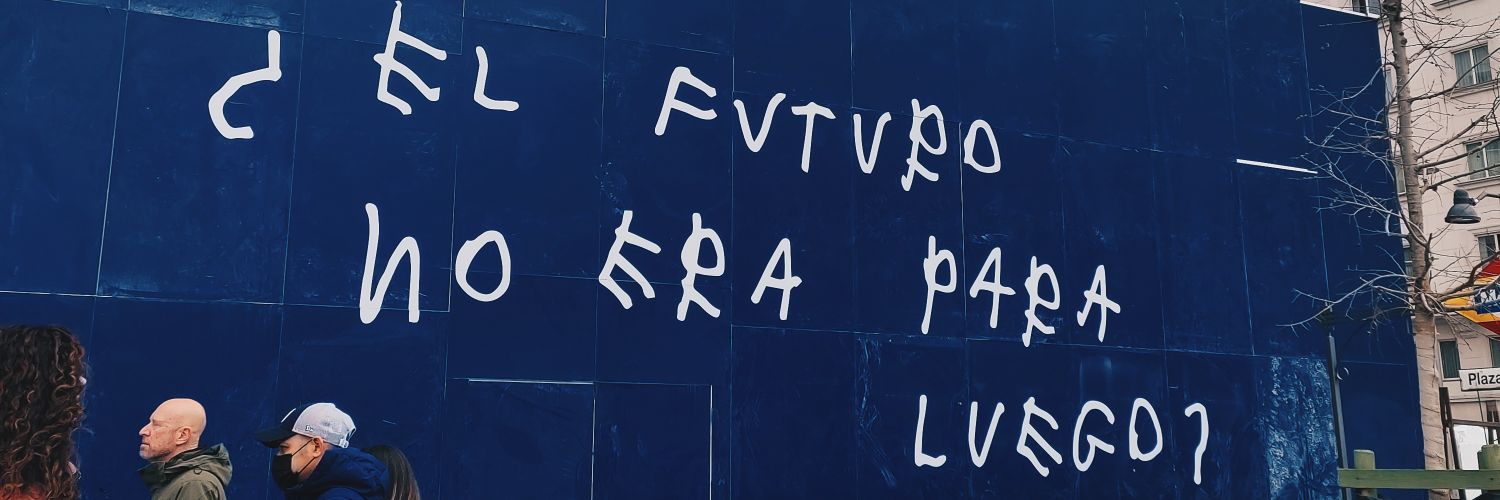 ¿EL FUTURO
NO ERA PARA
LUEGO?
Plaza